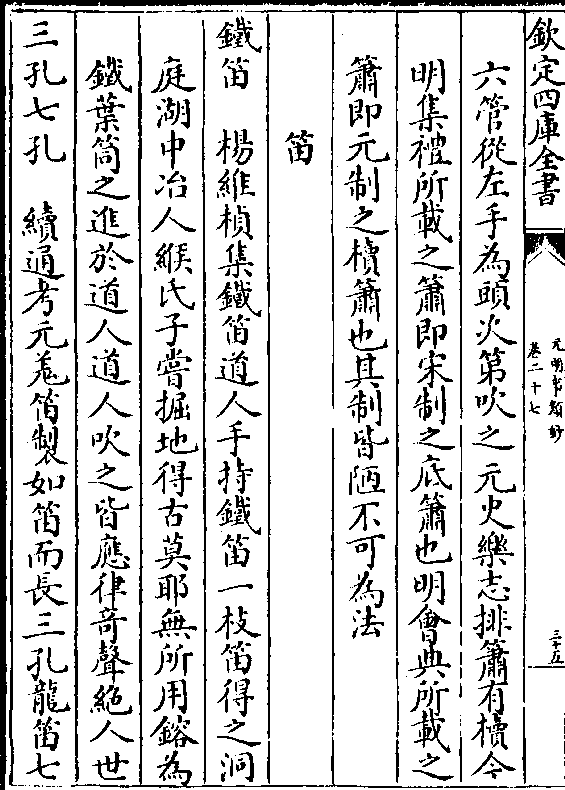 欽定四庫全書
元明事類鈔
卷二十七
三十五
六管從左手為頭次第吹之元史樂志排簫有櫝今
明集禮所載之簫即宋制之底簫也明會典所載之
簫即元制之櫝簫也其制皆陋不可為法
笛
鐵笛　楊維楨集鐵笛道人手持鐵笛一枝笛得之洞
庭湖中冶人緱氏子嘗掘地得古莫耶無所用鎔為
鐵葉筒之進於道人道人吹之皆應律奇聲絶人世
三孔七孔　續通考元羗笛製如笛而長三孔龍笛七